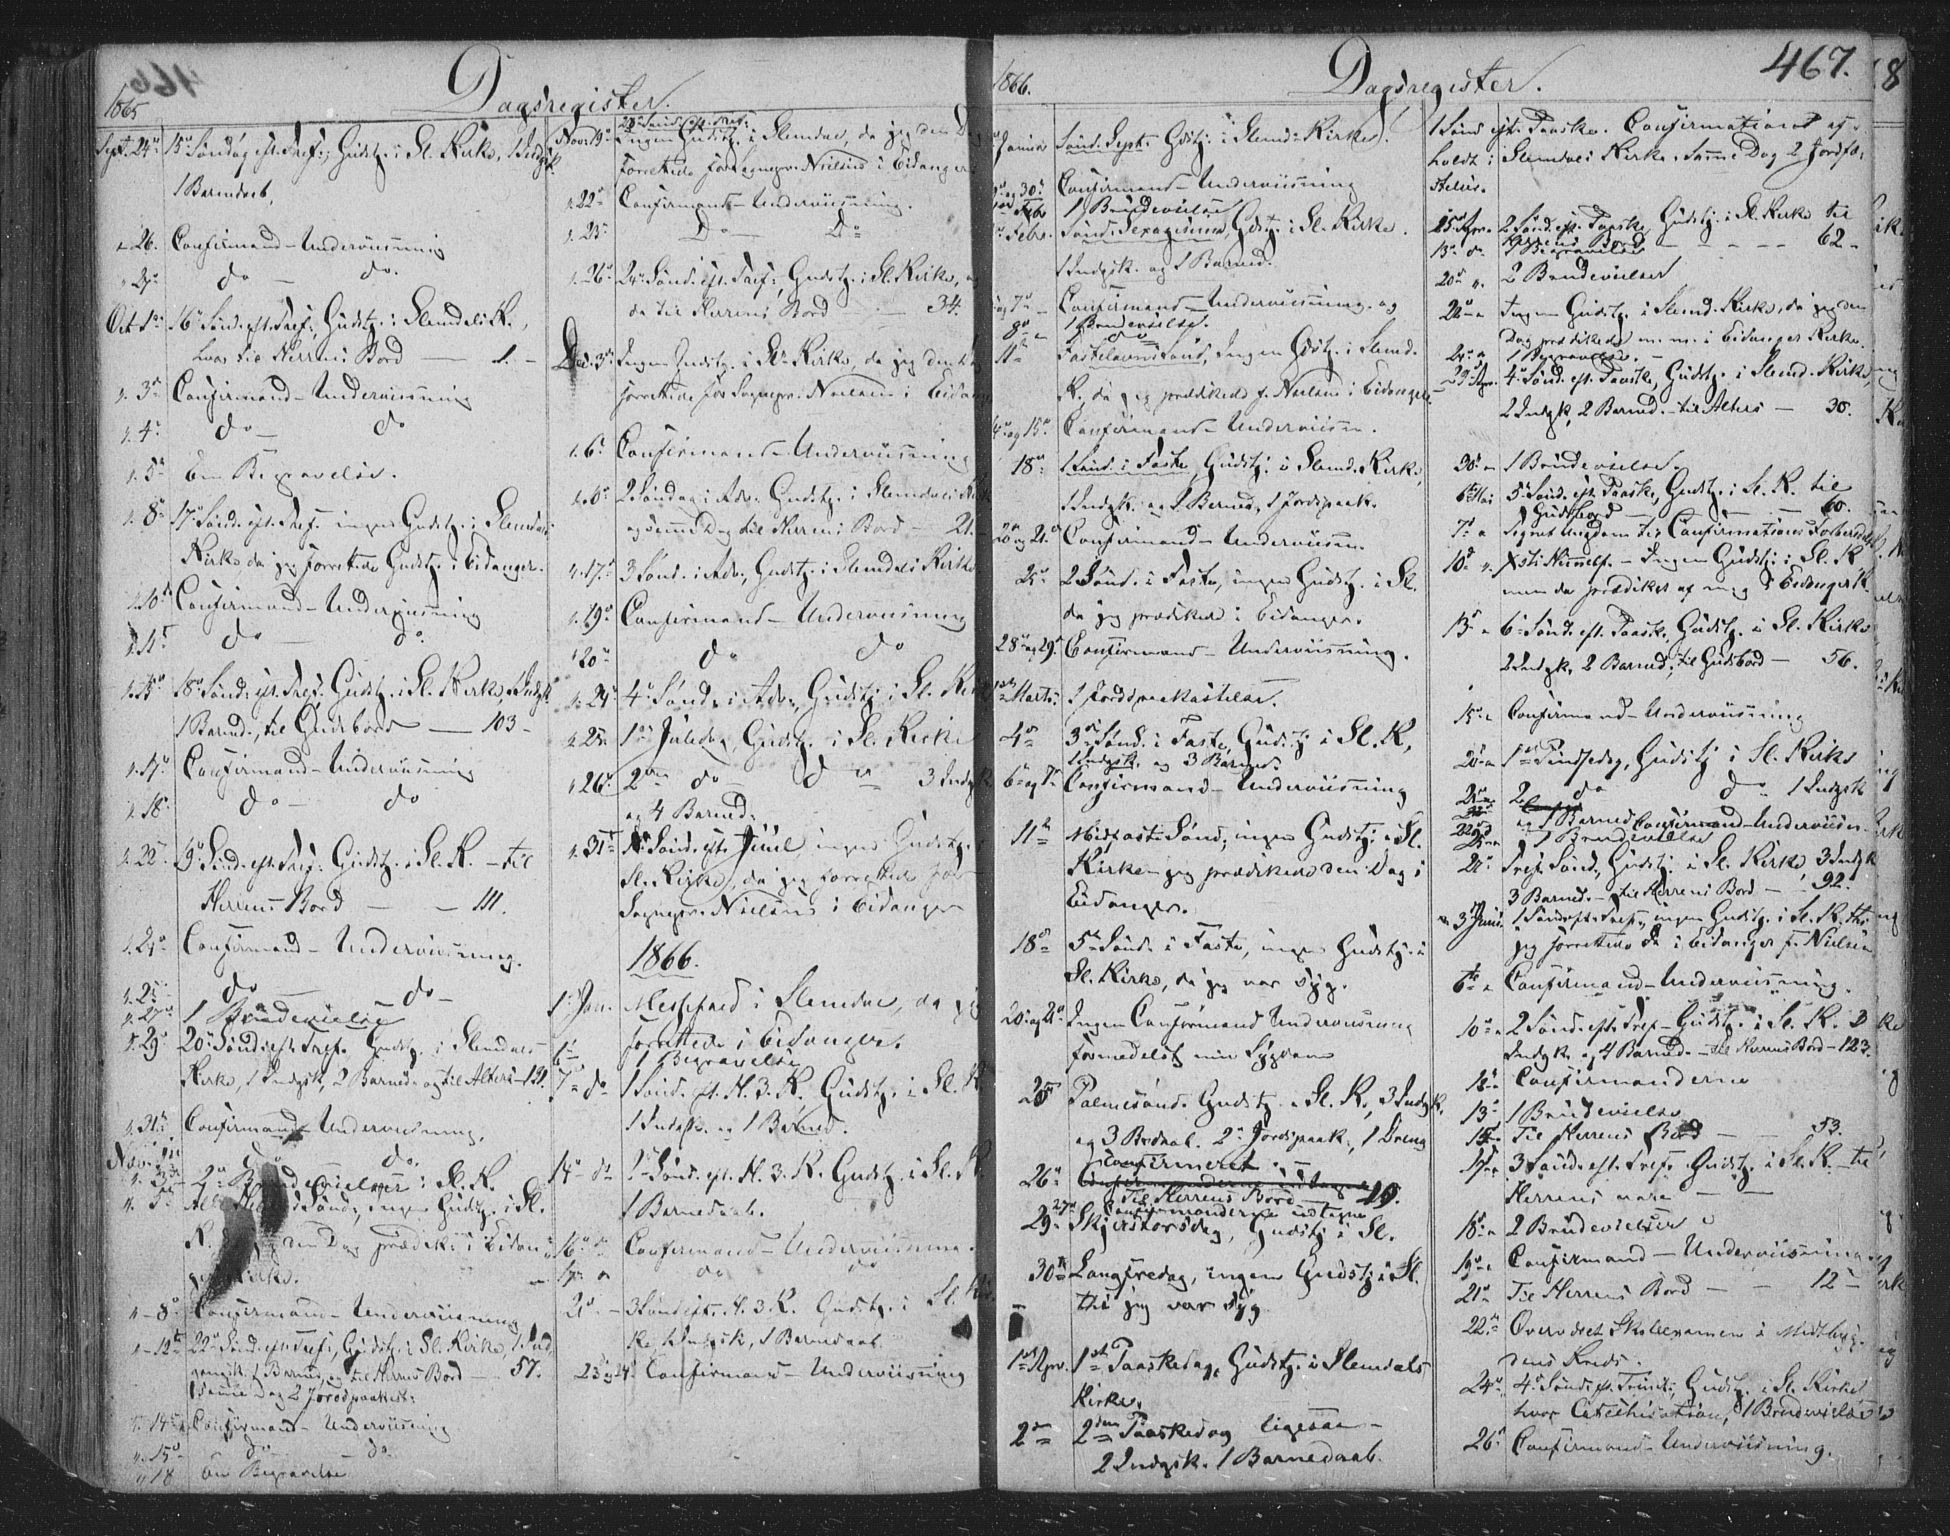 1865
Dagsregister.
Sept. 24de 15de Søndag eft. Tref., Gudstj. i Sl. Kirke, 1 Indgsk.
1 Barnedaab.
" 26. Confirmand-Underviisning
" 27. do - do.
Oct. 1ste 16de Sønd. eft. Tref., Gudstj. i Slemdals K.,
hvor til Herrens Bord — 1. -
" 3die Confirmand-Underviisning
" 4de do — do
" 5te En Begravelse.
" 8de 17de Sønd. eft. Tref. ingen Gudstj. i Slemdals
Kirke da jeg forrettede Gudstj. i Eidanger.
" 10de Confirmand-Underviisning
" 11te do — do
" 15de 18de Sønd. eft. Tref. Gudstj. i Sl. Kirke, Indgsk.
1 Barned., til Gudsbord — 103 -
" 17de Confirmand-Underviisning
" 18. do — do
" 22de 19de Sønd. eft. Tref. Gudstj. i Sl. K. - til
Herrens Bord — — 111.
" 24de Confirmand-Underviisning.
" 25. do — do -
" 27de 1 Brudevielse
" 29de 20de Sønd. eft. Tref. Gudstj. i Slemdals
Kirke, 1 Indgsk, 2 Barned. og til Alters - 131.
" 31te Confirmand-Underviisning.
Nov. do do.
" 3die 2de Brudevielser i Sl. K.
" 5te Alle Helg. Sønd., ingen Gudstj. i Sl.
K. den Dag prædik. i Eidan-
ger Kirke.
" 8de Confirmand-Underviisning
" 12te 22de Sønd. eft. Tref., Gudstj. i Sl. Kirke, 1 Ind-
gangsk. 1 Barned. og til Herrens Bord — 57.
samme Dag 2 Jordspaakast.
" 14de Confirmand-Underviisning
" 15de do — do.
" 18 En Begravelse
Nov. 19de Ingen Gudstj. i Slemdal, da jeg den Dag
forrettede for Sognepr. Nielsen i Eidanger
" 22de Confirmand-Underviisning.
" 23de Do — Do
" 26de 24de Sønd. eft. Tref., Gudstj. i Sl. Kirke, og
da til Herrens Bord — 34.
Dec. 3die Ingen Gudstj. i Sl. Kirke, da jeg den Dag
forrettede for Sognepr. Nielsen i Eidanger
" 6te Confirmand-Underviisning
2 Søndag i Adv. Gudstj. i Slemdals Kirke
og samme Dag til Herrens Bord — 21.
" 17de 3 Sønd. i Adv., Gudstj. i Slemdals Kirke
" 19de Confirmand-Underviisning
" 20de do do
" 24de 4de Sønd. i Adv., Gudstj. i Sl. Kirke
" 25de 1ste Juledag, Gudstj. i Sl. Kirke
" 26de 2den do — do — 3 Indgsk
og 4 Barned.
" 31te Sønd. eft. Juul ingen Gudstj. i
Sl. Kirke, da jeg forrettede for
Sognepr. Nielsen i Eidanger
1866.
1ste Jan. Messefald i Slemdal, da jeg
forrettede i Eidanger.
6te 1 Begravelse
7de do 1 Sønd. ef. H. 3. K. Gudstj. i Sl. K
1 Indgsk. og 1 Barned.
14de do 2den Sønd. eft. H. 3. K. Gudstj. i Sl. K
1 Barnedaab.
16de do Confirmand-Underviisning.
17de do do
21de - 3 Sønd. eft. H. 3 K. Gudstj. i Sl. Kir-
ke, 1 Indgsk, 1 Barnedaab
23 og 24. Confirmand-Underviisning
1866.
Dagsregister.
467.
Januar Sønd. Sept. Gdstj. i Slemd. Kirke.
og 30te Confirmand-Underviisning
Feb. 1 Brudevielse
Febr. Sønd. Sexagesima, Gdstj. i Sl. Kirke.
1 Indgsk. og 1 Barned.
og 7de Confirmand-Underviisning. og
8de 1 Brudevielse.
11te Fastelavns Sønd., Ingen Gdstj. i Slemd.
K. da jeg prædikede f. Nielsen i Eidanger
14de og 15de Confirmand-Underviisn.
18de 1 Sønd. i Faste, Gudstj. i Slemd. Kirke,
1 Indgsk. og 1 Barned, 1 Jordspaak.
20de og 21de Confirmand-Underviisn.
25de 2 Sønd. i Faste, ingen Gudstj. i Sl.
da jeg prædikede i Eidanger.
28de og 29. Confirmand-Underviisning.
Marts. 1 Jordspaakastelse.
4de 3die Sønd. i Faste, Gudstj. i Sl. K,
1 Indgsk. og 3 Barned.
6te og 7de Confirmand-Underviisning
11te Midfaste Sønd., ingen Gudstj. i Sl.
Kirke - jeg prædikede den Dag i
Eidanger.
18de 5te Sønd. i Faste, ingen Gudstj. i
Sl. Kirke, da jeg var syg.
20de og 21de Ingen Confirmand Underviisning
formedelst min Sygdom
25de Palmesønd. Gudstj. i Sl. K, 3 Indgsk,
og 3 Bardaab. 2de Jordspaak, 1 Dreng
confirmeret.
26de Confirmanderne udtagne
Til Herrens Bord — 19.
27de Confirmanderne udtagne
29de Skjærstorsdag, Gudstj. i Sl.
30te Langfredag, ingen Gudstj. i Sl.
thi jeg var syg.
1ste Apr. 1ste Paaskedag, Gudstj. i Slemdals
Kirke.
2den 2den Paaskedag ligesaa -
2 Indgsk. 1 Barnedaab.
1 Sønd eft. Paaske. Confirmation af-
holdt i Slemdals Kirke. Samme Dag 2 Jordfæ-
stelser.
2 Sønd. eft. Paaske, Gudstj. i Sl. Kirke til
Herrens Bord — — — 62 -
13de do 1 Begravelse
20de " 2 Brudevielser
22de Ingen Gudstj. i Slemd. Kirke, da jeg den
Dag prædikede m. m. i Eidanger Kirke.
1 Begravelse. -
29de Apr. 4de Sønd. eft. Paaske, Gudstj. i Slemd. Kirke,
2 Indgsk, 2 Barned. - til Alters — 30.
30te 1 Brudevielse.
6te Mai 5te Sønd. eft. Paaske, Gudstj. i Sl. K. til
Gudsbord — 60.
7de Tegnet Ungdom til Confirmations Forberedelse
10de Xsti Himmelf. - Ingen Gudstj. i Sl. K
men da prædiket af mig i Eidanger K.
13de 6te Sønd. eft. Paaske, Gudstj. i Sl. Kirke
2 Indgsk. 2 Barned., til Gudsbord — 56.
15de Confirmand-Underviisning
20de 1ste Pindsedag, Gudstj i Sl. Kirke
21de 2 do do 1 Indgsk
og 1 Barned Confirmand-Underviisn.
1 Brudevielse
27de Tref. Sønd., Gudstj. i Sl. Kirke, 3 Indgsk
3 Barned. - til Herrens Bord — 92.
3die Juni 1 Sønd. eft. Tref., ingen Gudstj. i Sl. K. thi
jeg forrettede da i Eidanger f. Nielsen
6te Confirmand-Underviisning.
10de 2 Sønd. eft. Tref. - Gudstj. i Sl. K. 3
Indgsk. og 4 Barned. - til Herrens Bord - 123.
Confirmanderne
13de 1 Brudevielse
15de Til Herrens Bord — 53.
17de 3 Sønd. eft. Tref. Gudstj. i Sl. K. - til
Herrens — —
18de 2 Brudevielser
19de Confirmand-Underviisning
21de Til Herrens Bord — — 12 -
22de Overværet Skoleexamen i Midtbyg-
dens Kreds.
24de 4de Sønd. eft. Trinit., Gudstj. i Sl. Kirke
hvor Catechisation, 1 Brudevielse
26de Confirmand-Underviisning.